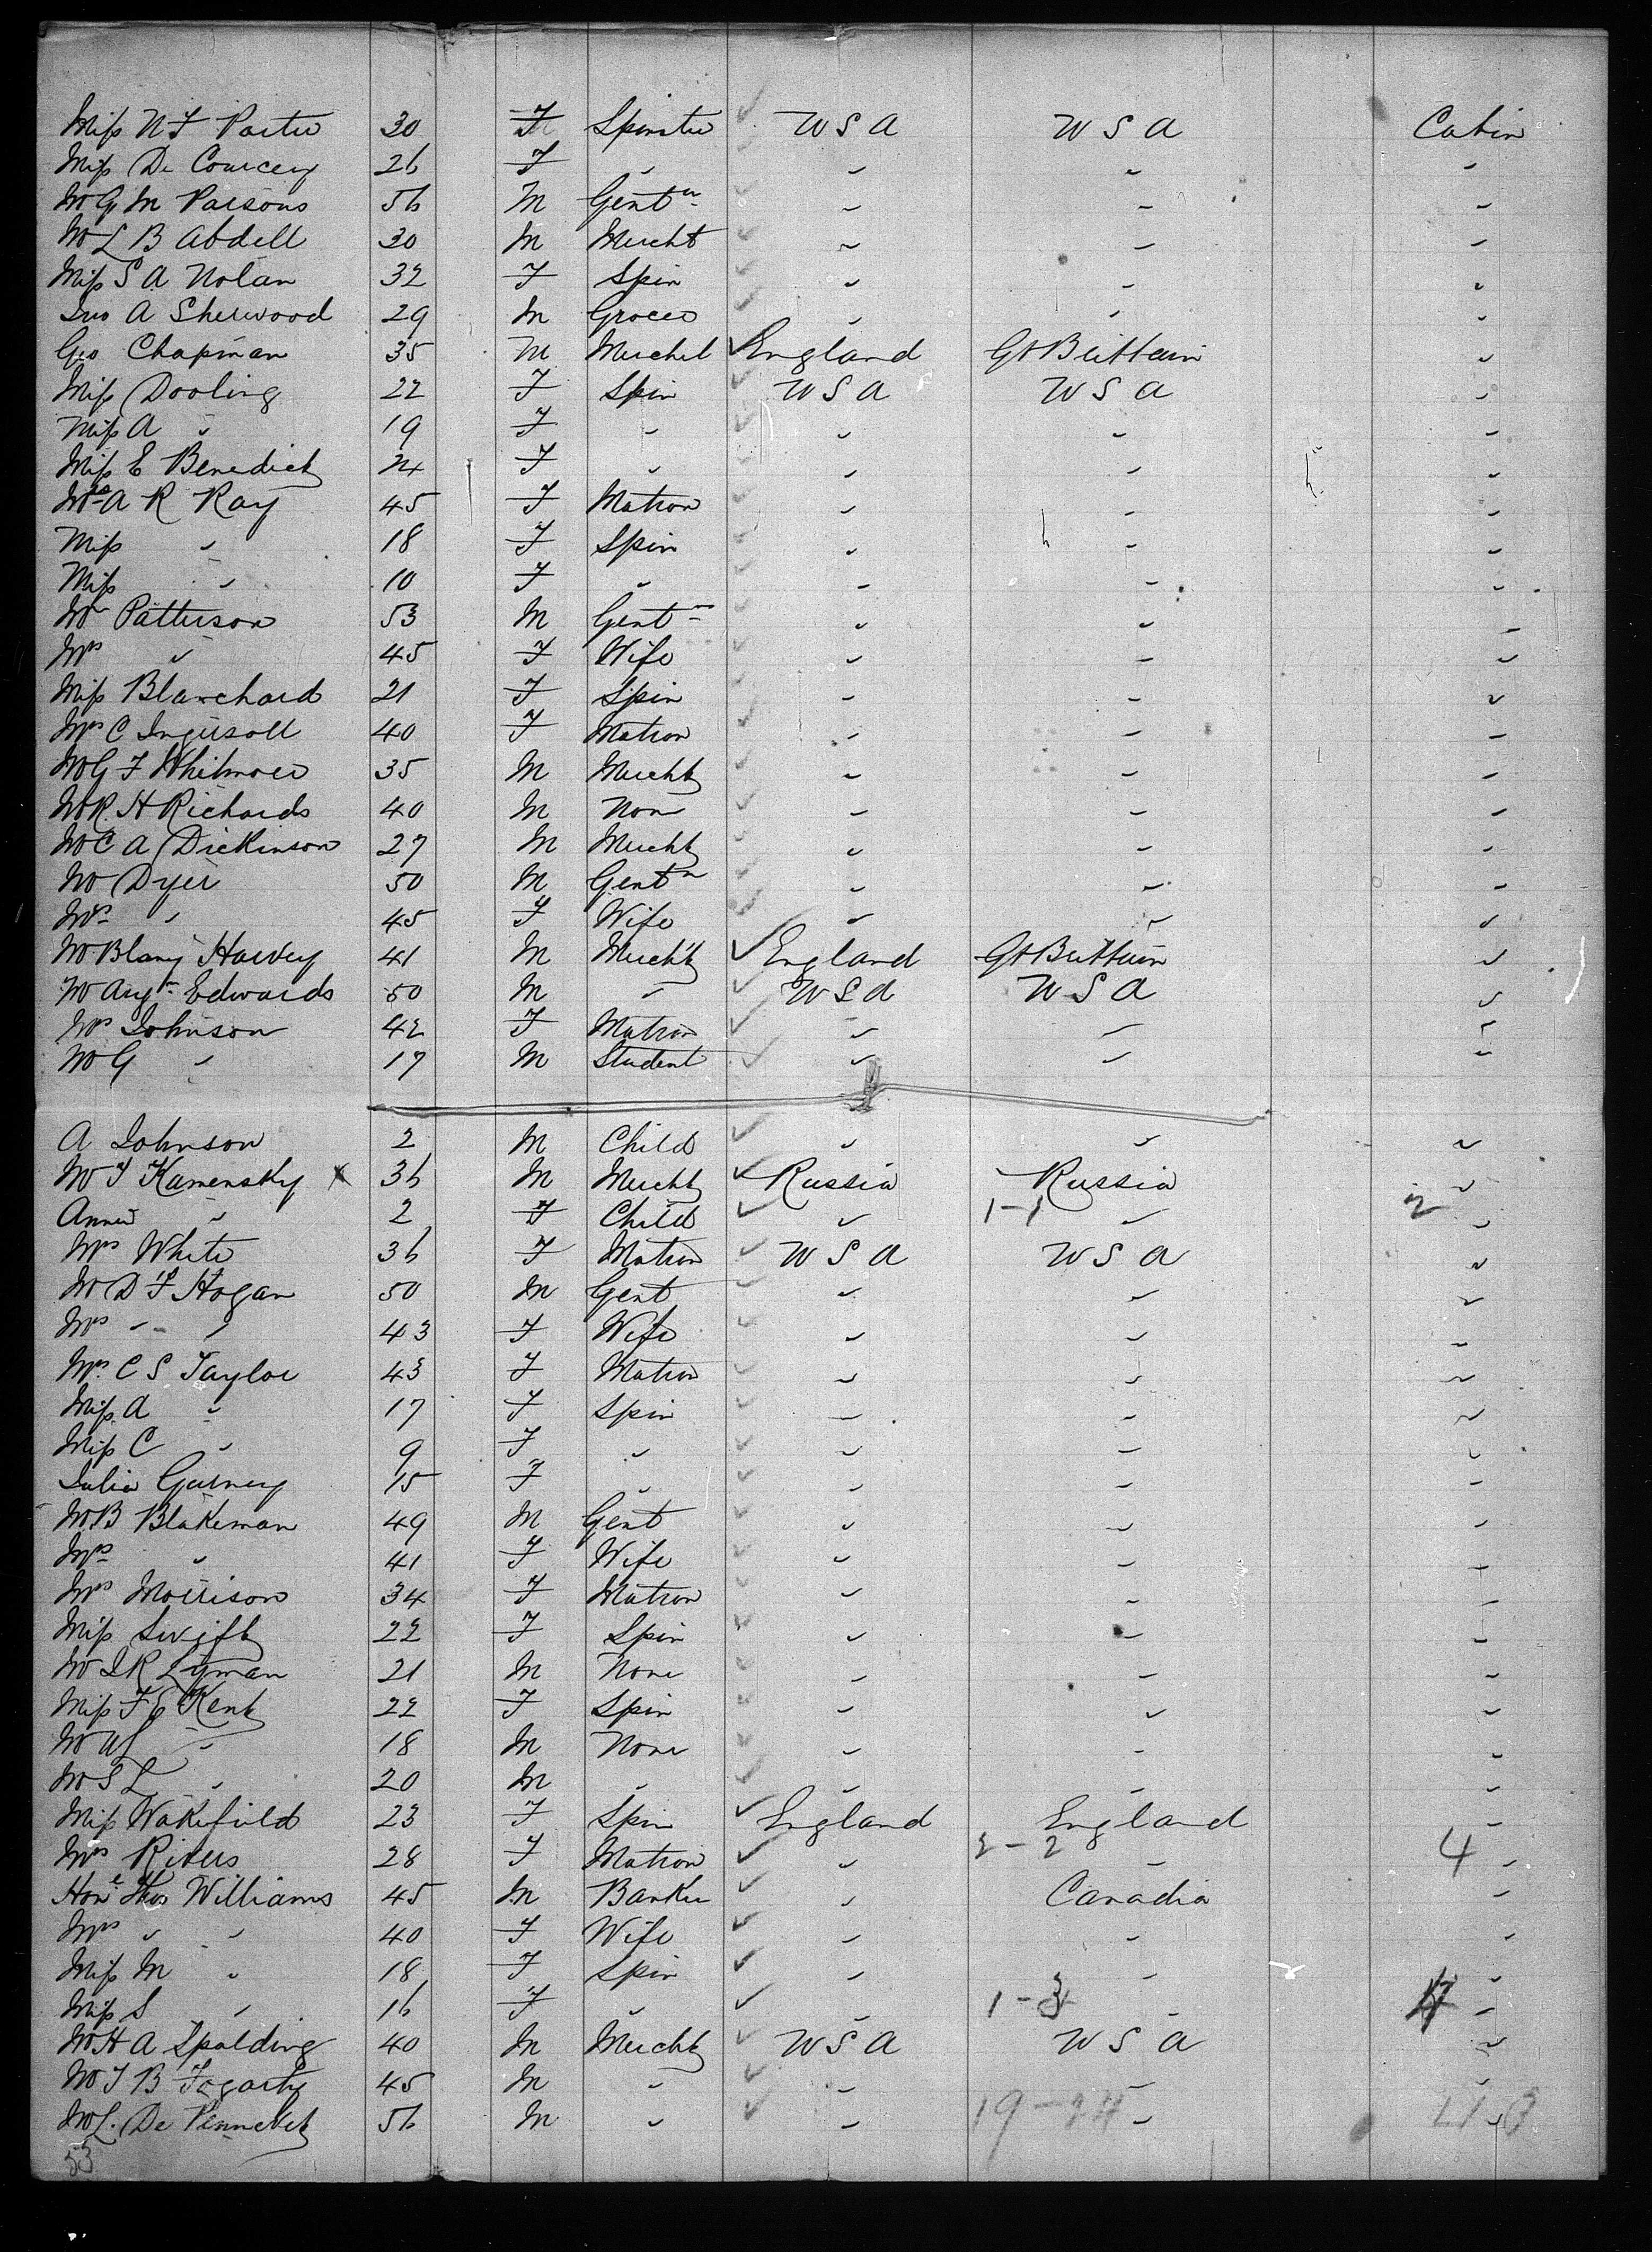 Miss N F Porter 30 F Spinster U S A U S A Cabin
Miss De Courcey 26 F " " " "
Mr G M Parsons 56 M Gentn " " "
Mr L B Abdell 30 M Mercht " " "
Miss S A Nolan 32 F Spin " " "
Jno A Sherwood 29 M Grocer " " "
Geo Chapman 35 M Mercht England Gt Brittain "
Miss Dooling 22 F Spin U S A U S A "
Miss A " 19 F " " " "
Miss E Benedict 24 F " " " "
Mrs A R Ray 45 F Matron " " "
Miss " 18 F Spin " " "
Miss " 10 F " " " "
Mr Patterson 53 M Gentn " " "
Mrs " 45 F Wife " " "
Miss Blanchard 21 F Spin " " "
Mrs C Ingersoll 40 F Matron " " "
Mr G F Whitmore 35 M Mercht " " "
Mr R H Richards 40 M Non " " "
Mr C A Dickinson 27 M Mercht " " "
Mr Dyer 50 M Gentn " " "
Mrs " 45 F Wife " " "
Mr Harvey 41 M Mercht England Gt Brittain "
Mr Edwards 50 M " U S A U S A "
Mrs Johnson 42 F Matron " " "
Mr G " 17 M Student " " "
A Johnson 2 M Child " " "
Mr T Kamensky X 36 M Mercht Russia Russia "
Annie " 2 F Child " 1-1 " 2 "
Mrs White 36 F Matron U S A U S A "
Mr D F Hogan 50 M Gent " " "
Mrs " " 43 F Wife " " "
Mrs C S Taylor 43 F Matron " " "
Miss A " 17 F Spin " " "
Miss C " 9 F " " " "
Julia Gurney 15 F " " " "
Mr B Blakeman 49 M Gent " " "
Mrs " 41 F Wife " " "
Mrs Morrison 34 F Matron " " "
Miss Swift 22 F Spin " " "
Mr J R Lyman 21 M None " " "
Miss F E Kent 22 F Spin " " "
Mr " 18 M None " " "
Mr S L " 20 M " " " "
Miss Wakefield 23 F Spin England England "
Mrs Rivers 28 F Matron " 2-2 " 4 "
Hone Thos Williams 45 M Banker " Canadia "
Mrs " " 40 F Wife " " "
Miss M " 18 F Spin " " "
Miss S " 16 F " " 1-3 " "
Mr H A Spalding 40 M Mercht U S A U S A "
Mr T B Fogarty 45 M " " " "
Mr L. De 56 M " " 19- " "
53